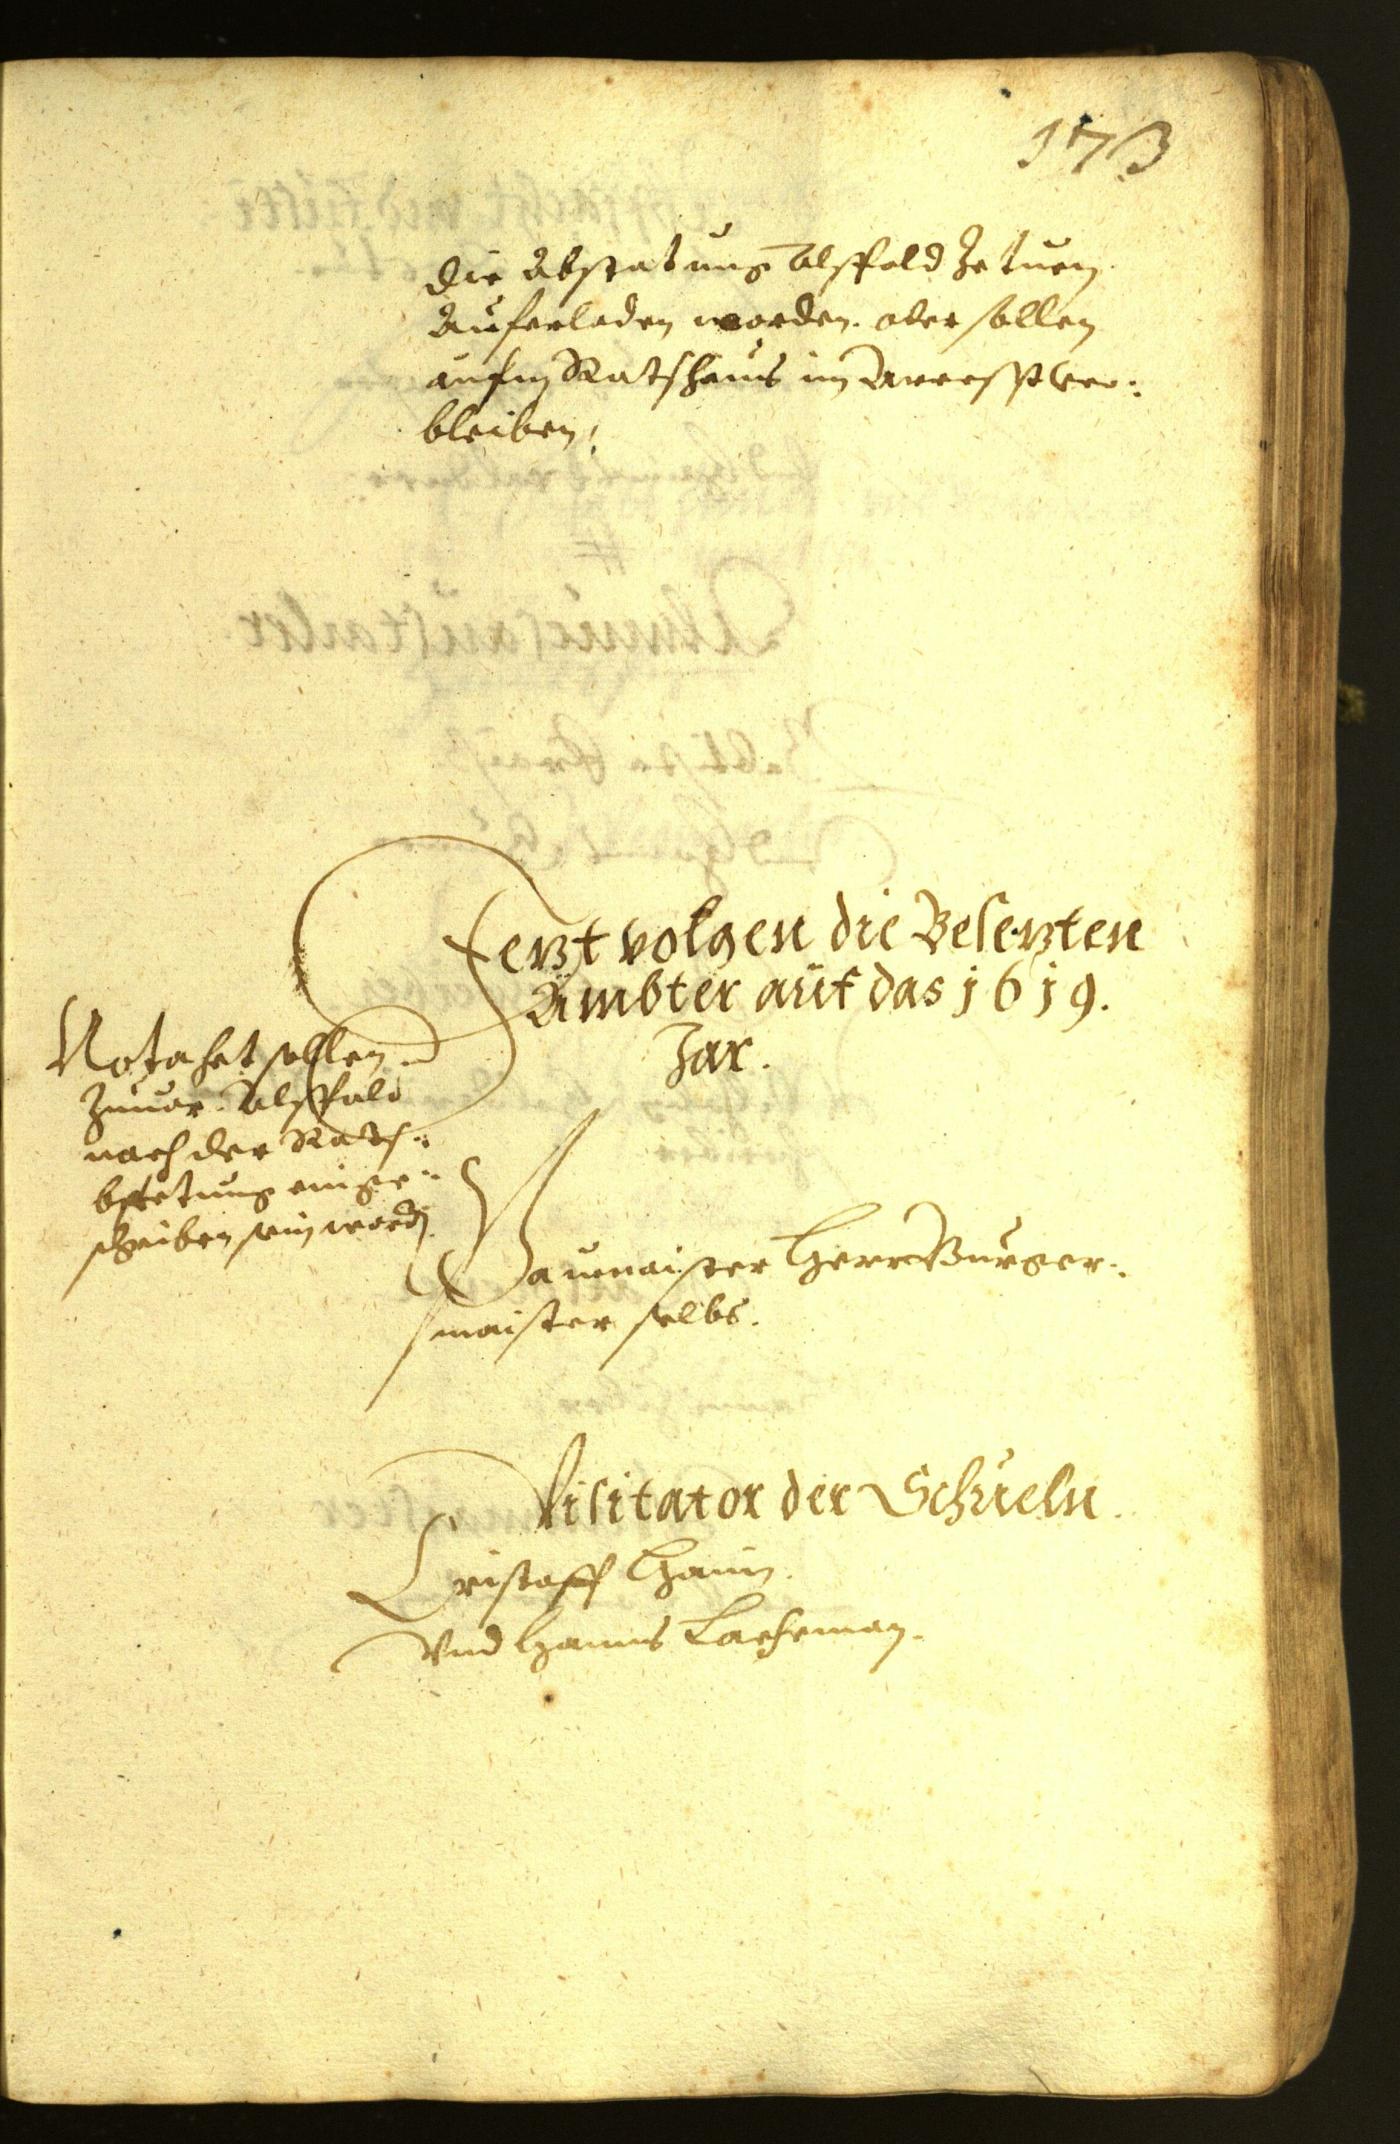 173
die Abstatung alsspald Zetuen
Auferladen worden. oder sollen
aufm Ratshaus im Arresst ver:
bleiben.
Jerzt volgen die Beserzten
Ämbter auf das 1619.
Jar.
Nota hat sollen
Zuuor Alsspald
nach der Rats:
einge:
schriben sein word.
Baumaister Herr Burger:
maister selbs.
Visitator der Schueln.
Cristoff Hain
Vnd Hanns Lacheman.